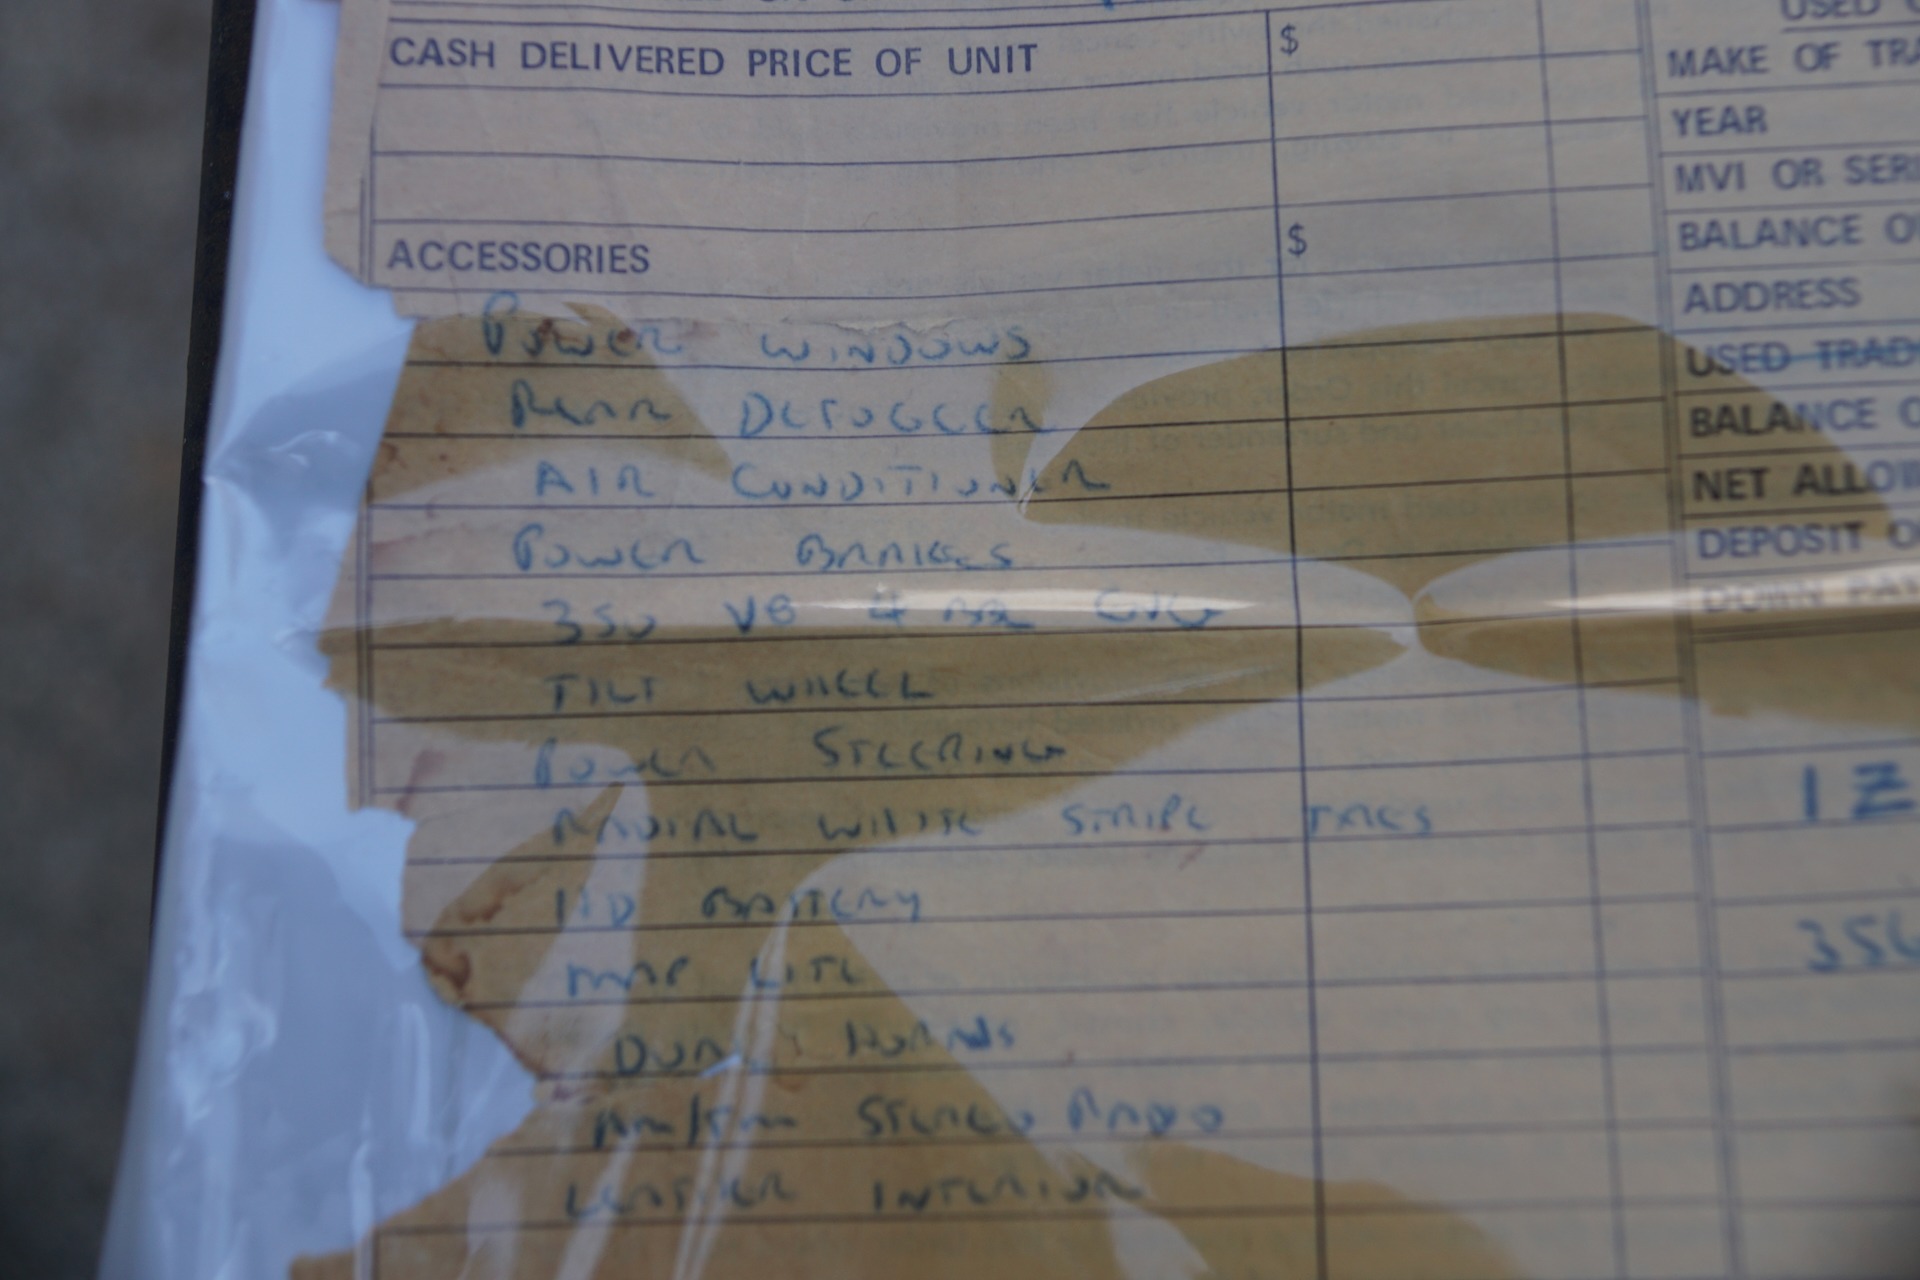 CASH DELIVERED PRICE OF UNIT $
ACCESSORIES $
POWER WINDOWS
REAR DEFOGGER
AIR CONDITIONER
POWER BRAKES
350 V8 4 BBL ENG
TILT WHEEL
POWER STEERING
RADIAL WHITE STRIPE TIRES
HD BATTERY
MAP LITE
DUAL HORNS
AM/FM STEREO RADIO
LEATHER INTERIOR
USED
MAKE OF TRA
YEAR
MVI OR SERI
BALANCE O
ADDRESS
USED TRAD
BALANCE O
NET ALLOW
DEPOSIT O
DOWN PAY
1Z
356